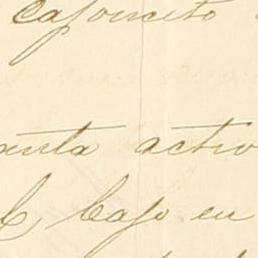 Cajoncito
anta activ
bajo en